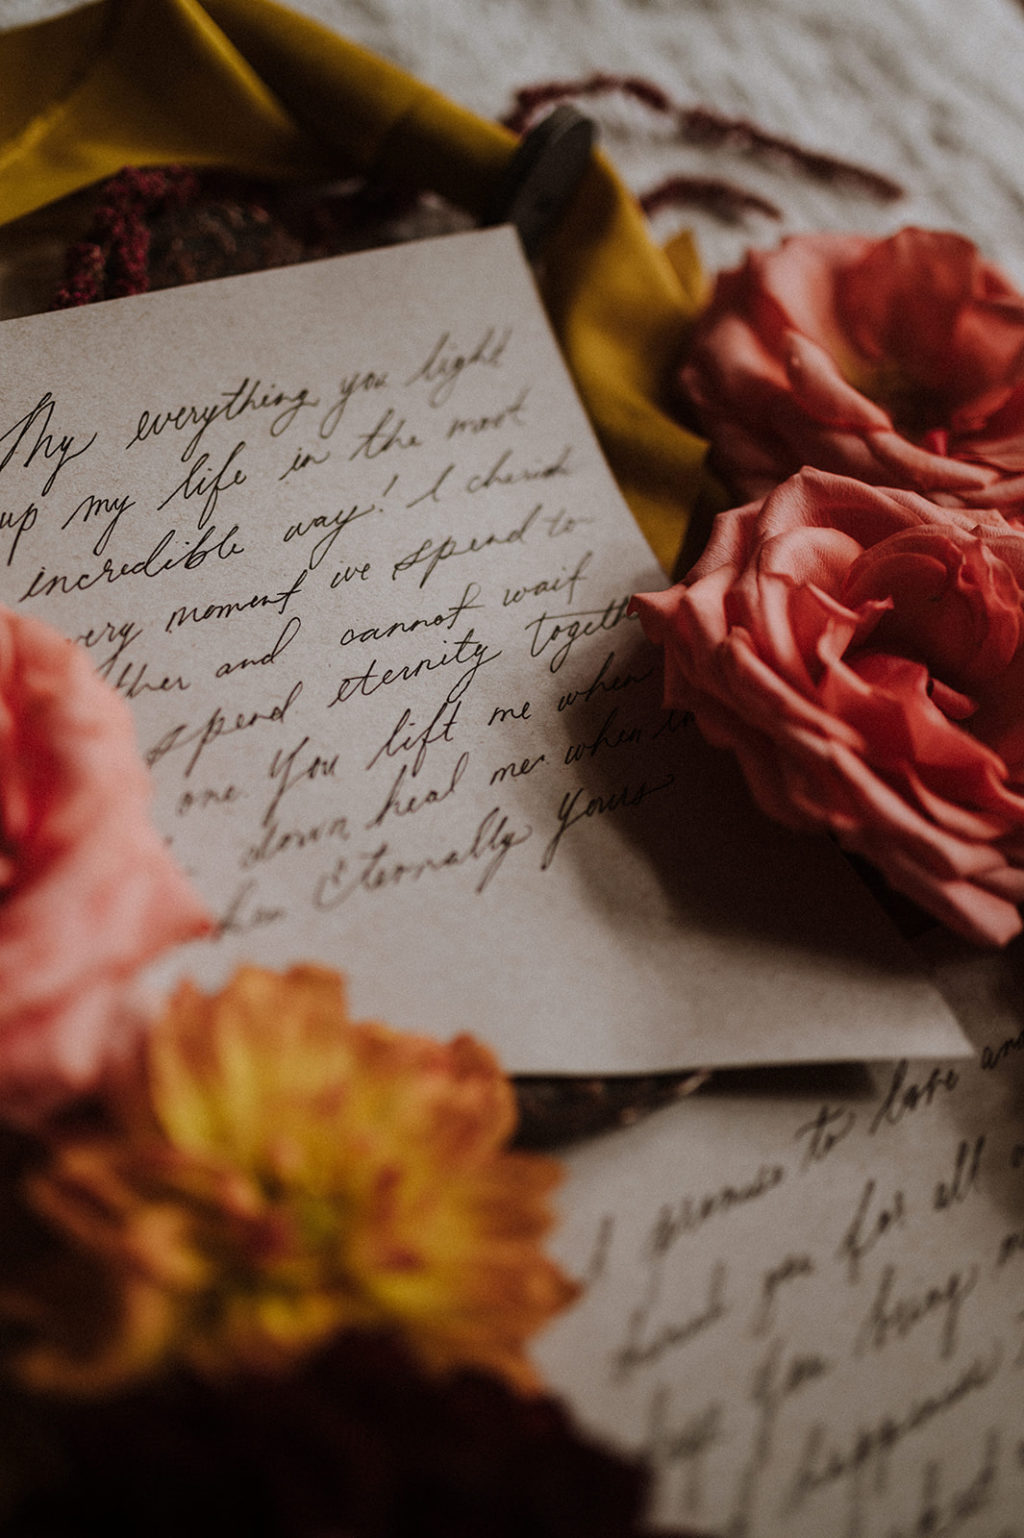 My everything you light
up my life in the most
incredible way! I cherish
every moment we spend to-
ther and cannot wait
spend eternity togethe
one. You lift me when
down heal me when
Eternally Yours
I promise to love and
you for all
You bring
happiness